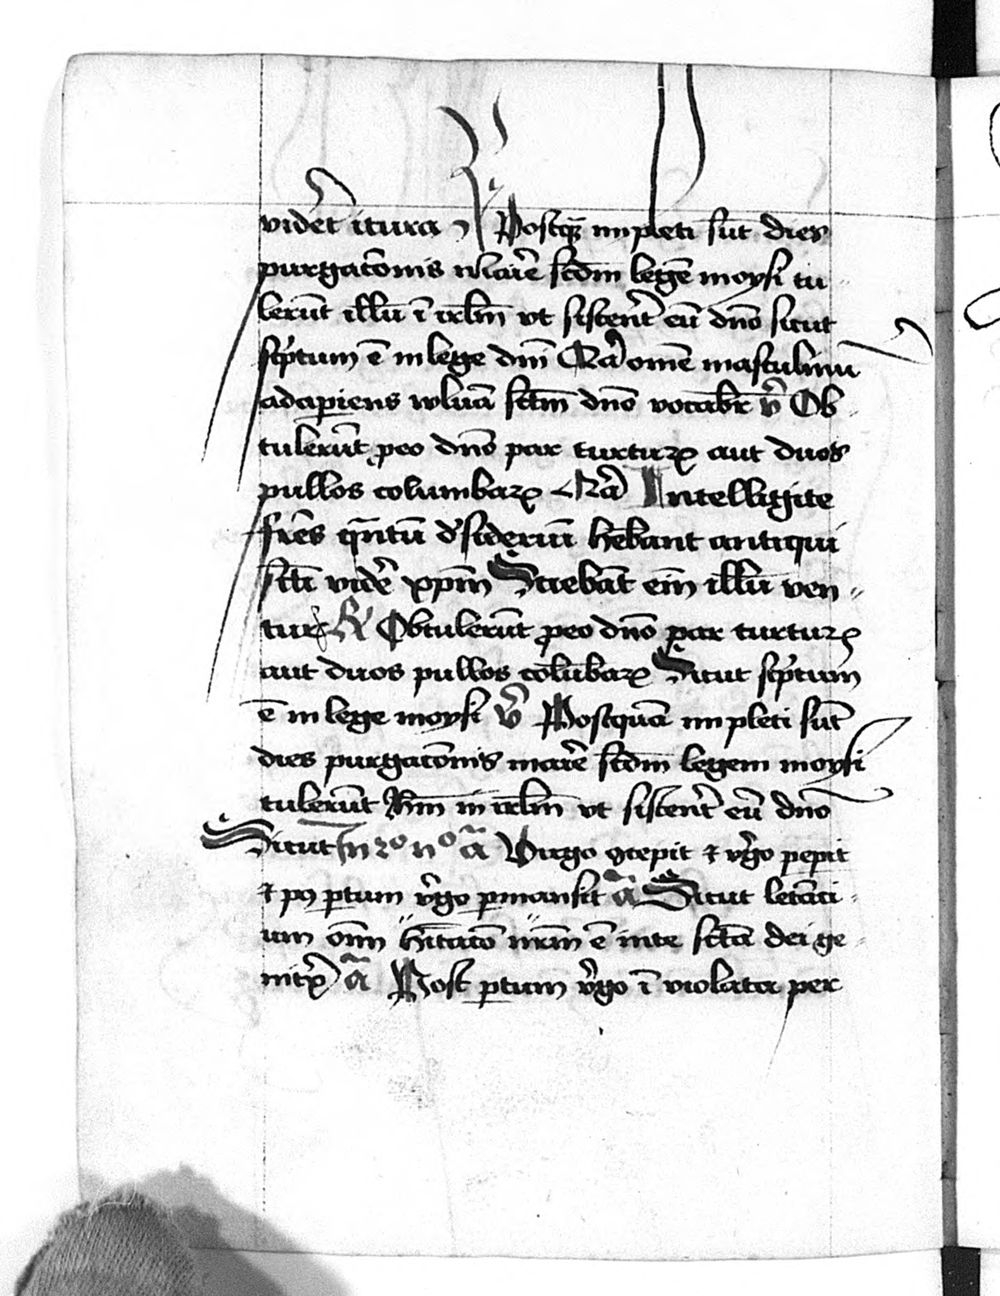 vidēt itura ꝛ Postqȝ impleti sūt dies
purgacōnis marie scdm legē moysi tu
lerūt illū ī irlm vt sistent eū dno sicut
scptum ē in lege dni Qa omē masculinū
adaperiens wluā sctm dno vocabr v̊ Ob
tulerūt ꝓ eo dno par turturꝝ aut duos
pullos columbarꝝ Intelligite
frēs qntū dsideriū hēbant antiqui
scti vidē xpm Sciebāt em illū ven
turū R Obtulerūt ꝓ eo dno par turturꝝ
aut duos pullos colūbarꝝ Sicut scptum
ē in lege moysi v̊ Postquā impleti sūt
dies purgacōnis marie scdm legem moysi
tulerūt Ihm in irlm vt sistent eū dno
Sicut In 2º nº a Virgo ꝯcepit ⁊ v̊go pepit
⁊ pꝰ ptum v̊go pmansit a Sicut letāci
um om̄ hītacō nrm ē in te scta dei ge
nitx a Post ptum v̊go ī violata per